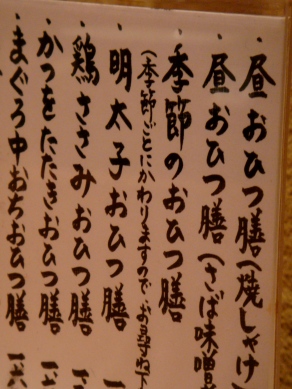 ・昼おひつ膳(焼しゃけ
・昼おひつ膳(さば味噌
・季節のおひつ膳
(季節ごとにかわりますので、お尋ね下
・明太子おひつ膳 一
・鶏ささみおひつ膳 一
・かつをたたきおひつ膳 一
・まぐろ中おちおひつ膳 一